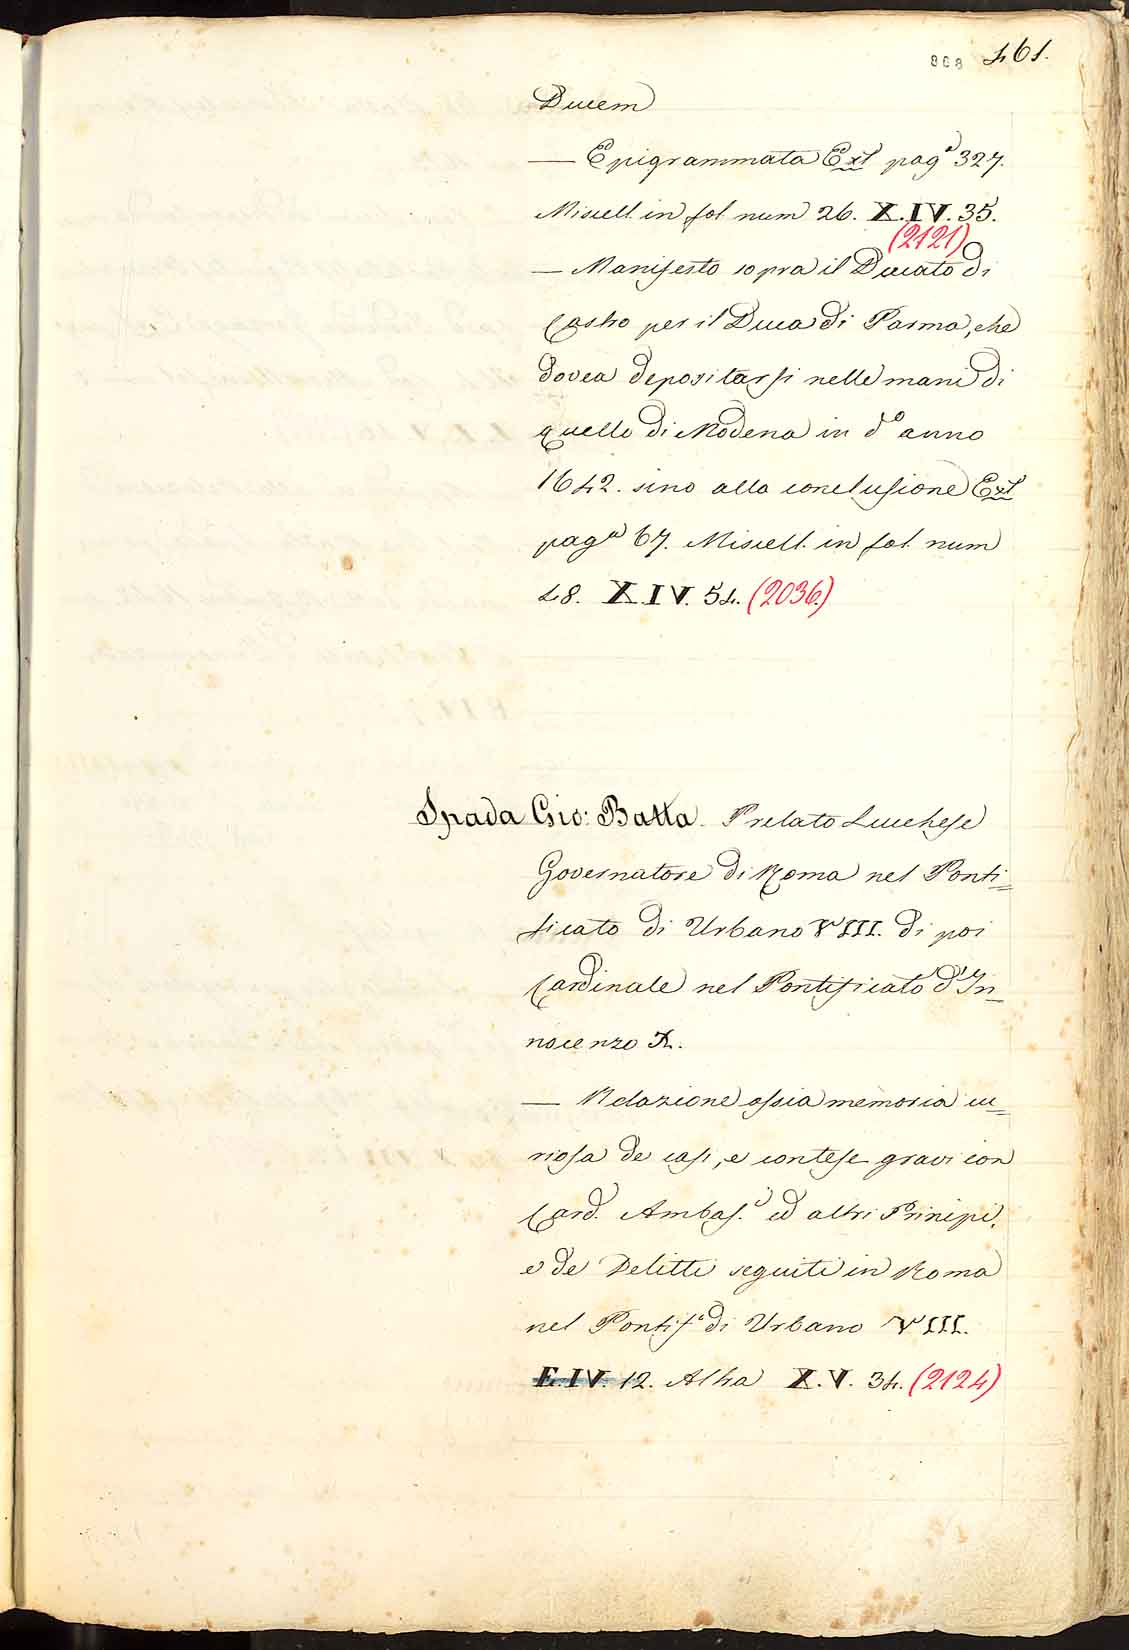 868 461.
Ducem
— Epigrammata Ext pagª 327.
Miscell. in fol num 26. X.IV. 35.
(2121)
— Manifesto sopra il Ducato di
Castro per il Duca di Parma, che
dovea depositarsi nelle mani di
quello di Modena in dº anno
1642. sino alla conclusione Ext
pagª 67. Miscell. in fol. num
48. X.IV. 54. (2036.)
Spada Gio: Batta. Prelato Lucchese
Governatore di Roma nel Ponti=
ficato di Urbano VIII. di poi
Cardinale nel Pontificato d'In=
nocenzo X.
— Relazione ossia memoria cu=
riosa de casi, e contese gravi con
Card. Ambas.i ed altri Prinipi,
e de Delitti seguiti in Roma
nel Pontif.º di Urbano VIII.
E.IV. 12. Altra X.V. 34. (2124)